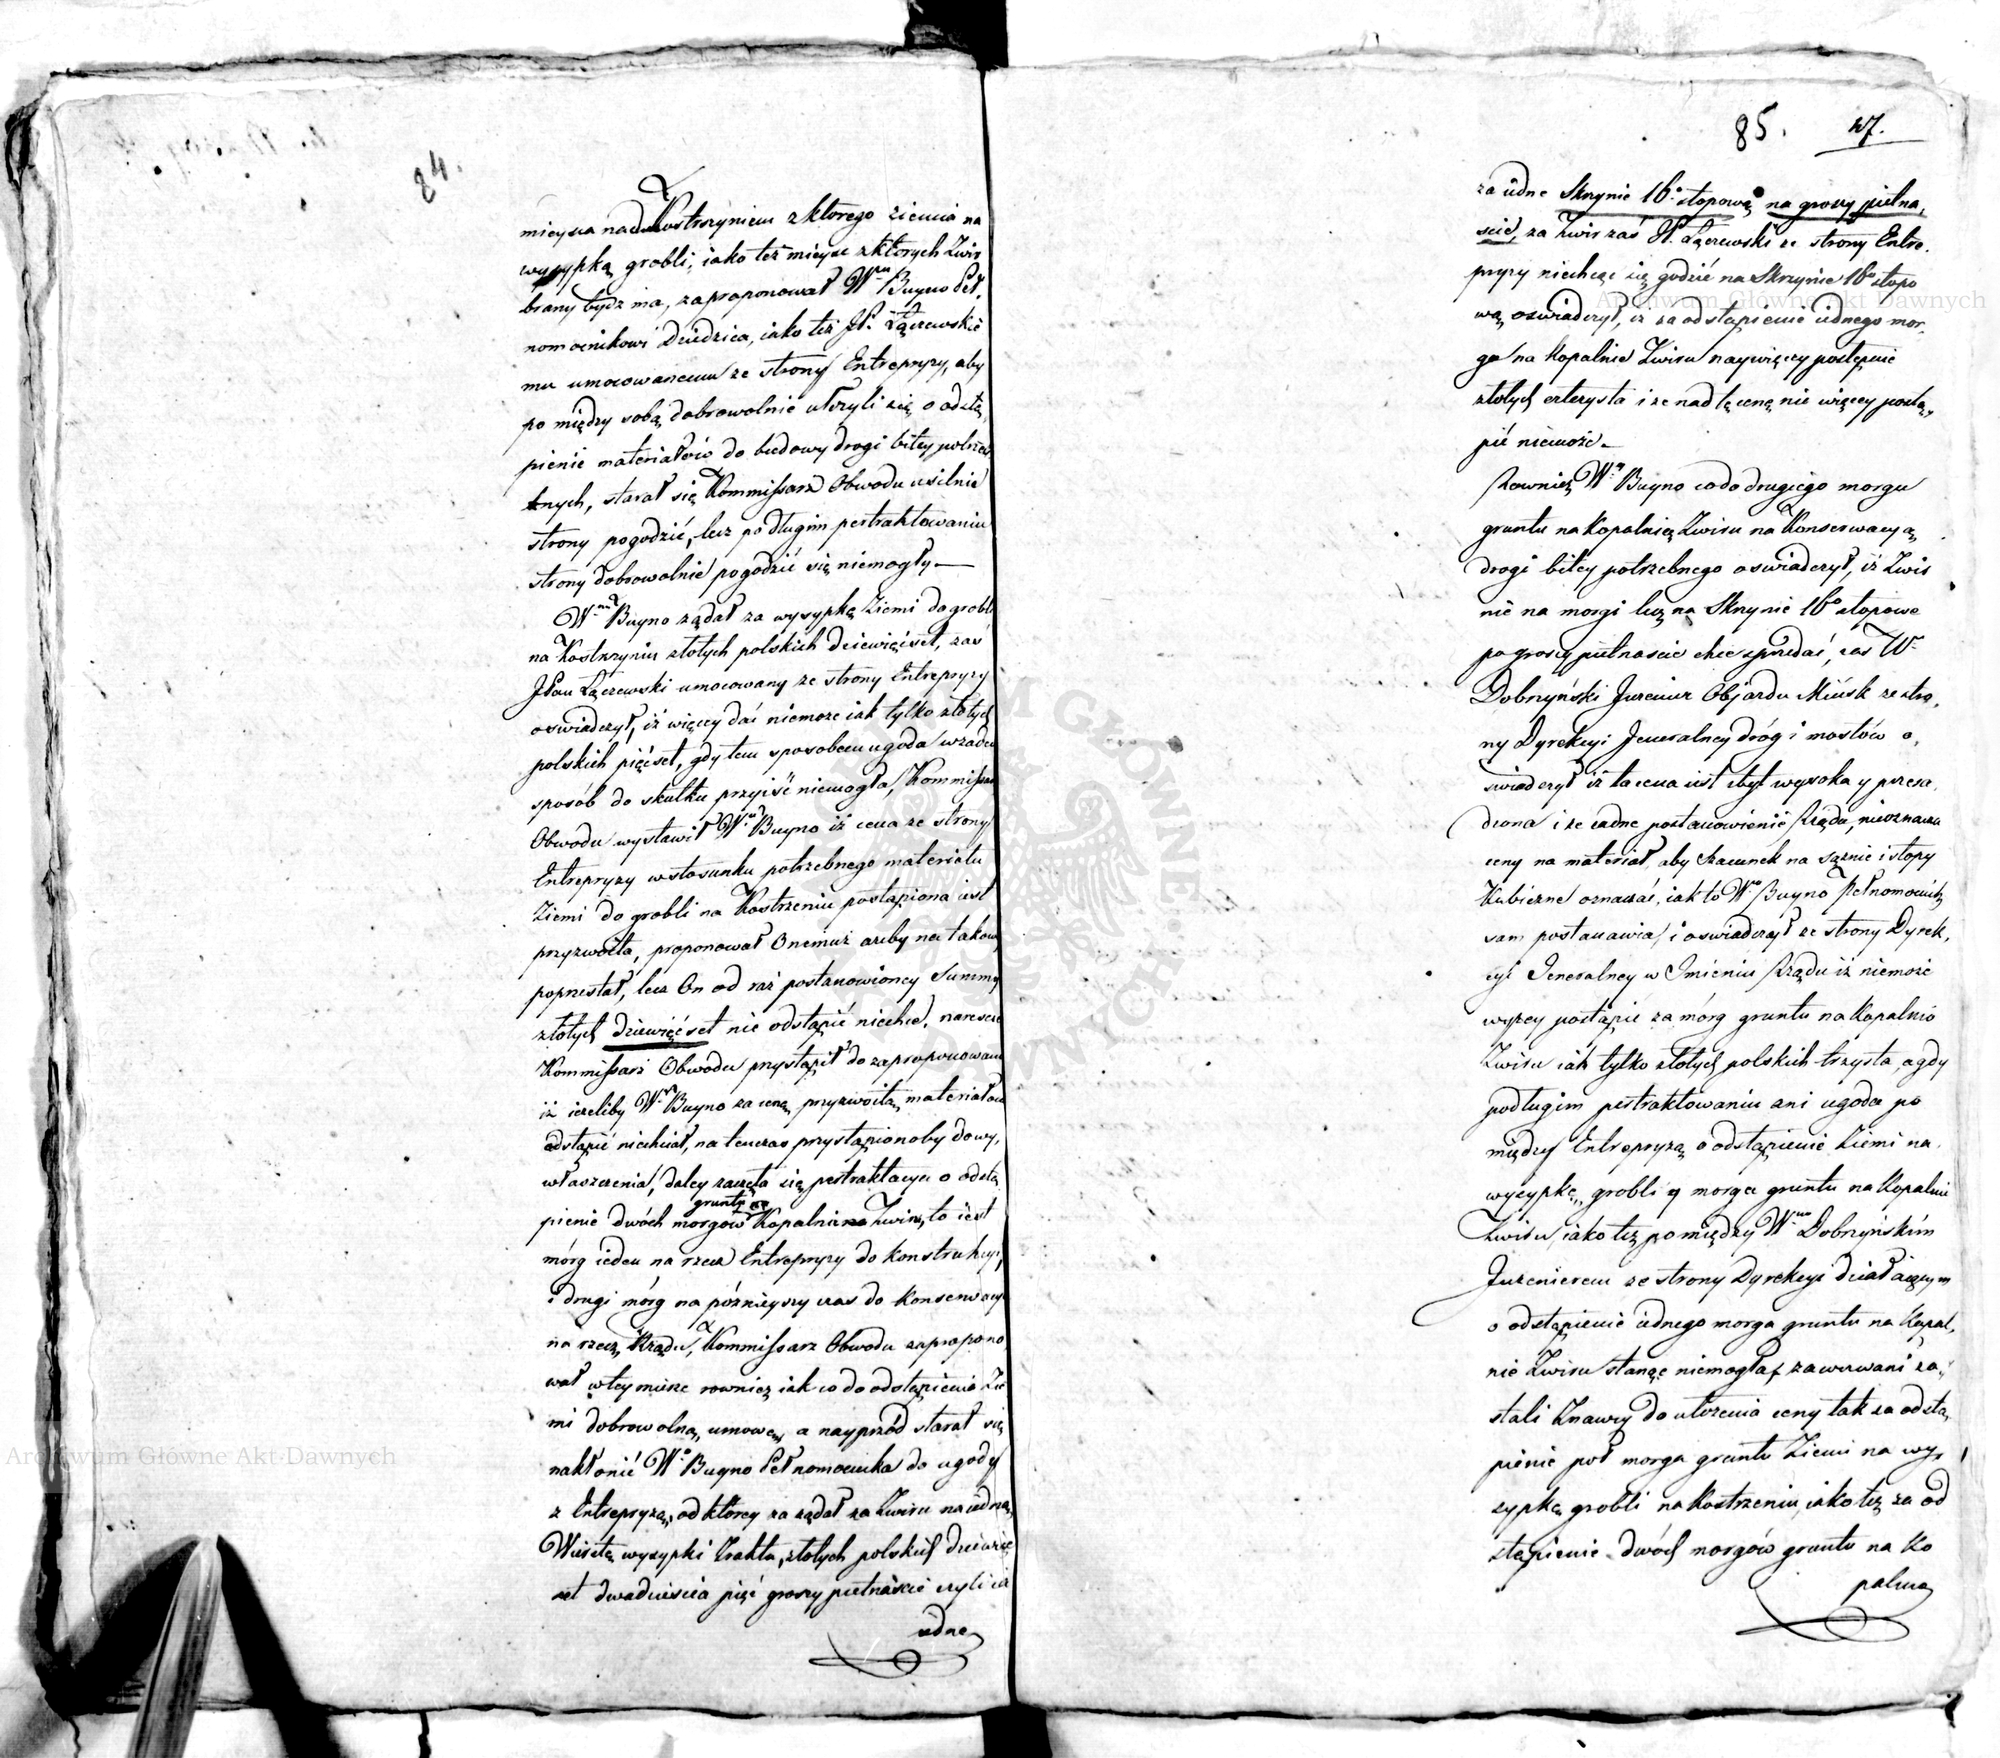 84.
mieysca nad Kostrzyniem z ktorego ziemia na
wysypkę grobli, iako też mieysc z ktorych Żwir
brany bydź ma, zaproponował Wmu Buyno Peł,
nomocnikowi Dziedzica, iako też JP. Łączewskie
mu umocowanemu ze strony Entrepryzy, aby
pomiędzy sobą dobrowolnie ułożyli się o odstą,
pienie materiałów do budowy drogi bitey potrze
bnych, starał się Kommissarz Obwodu usilnie
strony pogodzić, lecz po długim pertraktowaniu
strony dobrowolnie pogodzić się niemogły —
W. Buyno żądał za wysypkę Ziemi do grobli
na Kostrzyniu złotych polskich dziewięćset, zaś
JPan Łączewski umocowany ze strony Entrepryzy
oswiadczył, iż więcey dać niemoże iak tylko złotych
polskich pięćset, gdy tem sposobem ugoda w żaden
sposób do skutku przyiść niemogła, Kommissarz
Obwodu wystawił W. Buyno iż cena ze strony
Entrepryzy w stosunku potrzebnego materiału
Ziemi do grobli na Kostrzeniu postąpiona iest
przyzwoita, proponował Onemuż ażeby na takowey
poprzestał, lecz On od raz postanowioney Summy
złotych dziewięćset nie odstąpić niechce, nareszcie
Kommissarz Obwodu przystąpił do zaproponowania
iż ieżeliby W. Buyno za cenę przyzwoitą materiałow
odstąpić niechciał, na tenczas przystąpionoby do wy,
właszczenia, daley zaczęła się pertraktacya o odstą
gruntu na
pienie dwóch morgów Kopalnie Żwiru, to iest
mórg ieden na rzecz Entrepryzy do konstrukcyi,
i drugi mórg na późnieyszy czas do konserwacyi
na rzecz Rządu, Kommissarz Obwodu zapropono
wał w tey mierze rownież iak co do odstąpienia Zie
mi dobrowolną umowę, a nayprzód starał się
nakłonić W. Buyno Pełnomocnika do ugody
z Entrepryzą, od ktorey zażądał za Żwiru na iedną
Wiorstę wysypki Traktu, złotych polskich dziewięć
set dwadzieścia pięć groszy pietnaście czyli za
iedne
85. 47.
za iedne Skrzynie 16o stopową na groszy pietna,
scie, za Żwir zaś JP. Łączewski ze strony Entre,
pryzy niechcąc się godzić na Skrzynie 16o stopo
wą oswiadczył, iż za odstąpienie iednego mor,
ga na Kopalnie Żwiru naywięcey postępuie
złotych czterysta i że nad tę cenę nie więcey postą,
pić niemoże —
Rownież W. Buyno co do drugiego morgu
gruntu na Kopalnię Żwiru na Konserwacyą
drogi bitey potrzebnego oswiadczył, iż Żwir
nie na morgi lecz na Skrzynie 16o stopowe
po groszy pietnascie chce sprzedać, zaś W.
Dobrzyński Jnzenier Objazdu Mińsk ze stro,
ny Dyrekcyi Jeneralney dróg i mostów o,
swiadczył iż ta cena iest zbyt wysoka y przesa,
dzona i że żadne postanowienie Rządu, nieoznacza
ceny na materiał, aby szacunek na sążnie i stopy
Kubiczne oznaczać, iak to W. Buyno Pełnomocnik
sam postanawia, i oswiadczył ze strony Dyrek,
cyi Jeneralney w Jmieniu Rządu iż niemoże
wyżey postąpić za mórg gruntu na Kopalnie
Żwiru iak tylko złotych polskich trzysta, a gdy
po długim pertraktowaniu ani ugoda po
między Entrepryzą o odstąpienie Ziemi na
wysypkę, grobli y morga gruntu na Kopalnie
Żwiru, iako też pomiędzy Wmo Dobrzyńskim
Jnzenierem ze strony Dyrekcyi działaiącym
o odstąpienie iednego morga gruntu na Kopal,
nie Żwiru stanąc niemogła, zawezwani zo,
stali Znawcy do ułożenia ceny tak za odstą,
pienie poł morga gruntu Ziemi na wy,
sypkę grobli na Kostrzeniu, iako też za od
stąpienie dwóch morgów gruntu na Ko
palnię